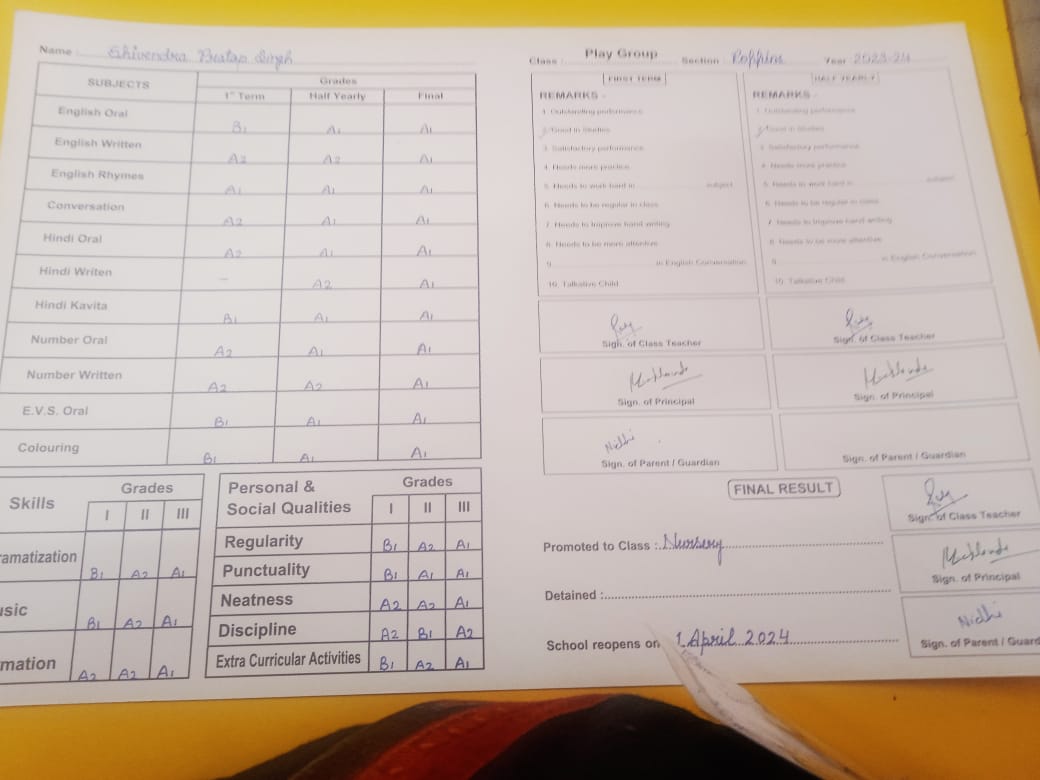 Name : Shivendra Pratap Singh
SUBJECTS Grades
1st Term Half Yearly Final
English Oral B1 A1 A1
English Written A2 A2 A1
English Rhymes A1 A1 A1
Conversation A2 A1 A1
Hindi Oral A2 A1 A1
Hindi Writen – A2 A1
Hindi Kavita B1 A1 A1
Number Oral A2 A1 A1
Number Written A2 A2 A1
E.V.S. Oral B1 A1 A1
Colouring B1 A1 A1
Skills Grades
I II III
amatization B1 A2 A1
usic B1 A2 A1
mation A2 A2 A1
Personal & Social Qualities Grades
I II III
Regularity B1 A2 A1
Punctuality B1 A1 A1
Neatness A2 A2 A1
Discipline A2 B1 A2
Extra Curricular Activities B1 A2 A1
Class : Play Group Section Poppins Year 2023-24
FIRST TERM
REMARKS -
1. Outstanding performance
2. Good in Studies
3. Satisfactory performance
4. Needs more practice
5. Needs to work hard in subject
6. Needs to be regular in class
7. Needs to Improve hand writing
8. Needs to be more attentive
9. in English Conversation
10. Talkative Child
Sign. of Class Teacher
Sign. of Principal
Nidhi
Sign. of Parent / Guardian
HALF YEARLY
REMARKS -
1. Outstanding performance
2. Good in Studies
3. Satisfactory performance
4. Needs more practice
5. Needs to work hard in subject
6. Needs to be regular in class
7. Needs to Improve hand writing
8. Needs to be more attentive
9. in English Conversation
10. Talkative Child
Sign. of Class Teacher
Sign. of Principal
Sign. of Parent / Guardian
FINAL RESULT
Promoted to Class : Nursery
Detained :
School reopens on 1 April 2024
Sign. of Class Teacher
Sign. of Principal
Nidhi
Sign. of Parent / Guard